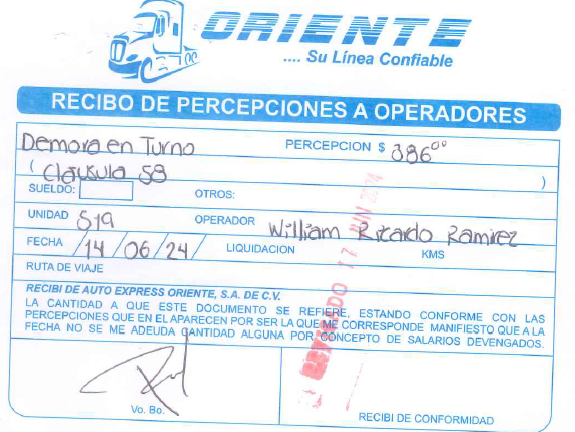 ORIENTE
.... Su Línea Confiable
RECIBO DE PERCEPCIONES A OPERADORES
Demora en Turno PERCEPCION $ 386⁰⁰
( Cláusula 58 )
SUELDO: OTROS:
UNIDAD 519 OPERADOR William Ricardo Ramirez
FECHA 14 / 06 / 24 / LIQUIDACION KMS
RUTA DE VIAJE
RECIBI DE AUTO EXPRESS ORIENTE, S.A. DE C.V.
LA CANTIDAD A QUE ESTE DOCUMENTO SE REFIERE, ESTANDO CONFORME CON LAS
PERCEPCIONES QUE EN EL APARECEN POR SER LA QUE ME CORRESPONDE MANIFIESTO QUE A LA
FECHA NO SE ME ADEUDA CANTIDAD ALGUNA POR CONCEPTO DE SALARIOS DEVENGADOS.
17 JUN 2024
Vo. Bo.
RECIBI DE CONFORMIDAD